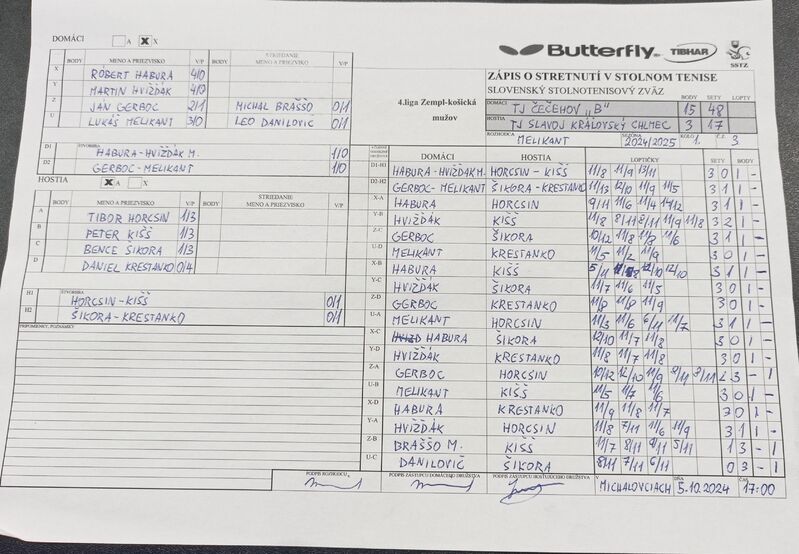 DOMÁCI A X X
BODY MENO A PRIEZVISKO V/P BODY STRIEDANIE MENO A PRIEZVISKO V/P
X RÓBERT HABURA 4/0
Y MARTIN HVIŽĎÁK 4/0
Z JÁN GERBOC 2/1 MICHAL BRAŠŠO 0/1
U LUKÁŠ MELIKANT 3/0 LEO DANILOVIČ 0/1
ŠTVORHRA
D1 HABURA-HVIŽĎÁK M. 1/0
D2 GERBOC-MELIKANT 1/0
HOSTIA X A X
BODY MENO A PRIEZVISKO V/P BODY STRIEDANIE MENO A PRIEZVISKO V/P
A TIBOR HORCSIN 1/3
B PETER KIŠŠ 1/3
C BENCE ŠIKORA 1/3
D DANIEL KRESTANKO 0/4
ŠTVORHRA
H1 HORCSIN-KIŠŠ 0/1
H2 ŠIKORA-KRESTANKO 0/1
PRIPOMIENKY, POZNÁMKY
Butterfly TIBHAR SSTZ
4.liga Zempl-košická mužov
ZÁPIS O STRETNUTÍ V STOLNOM TENISE
SLOVENSKÝ STOLNOTENISOVÝ ZVÄZ BODY SETY LOPTY
DOMÁCI TJ ČEČEHOV „B" 15 48
HOSTIA TJ SLAVOJ KRÁĽOVSKÝ CHLMEC 3 17
ROZHODCA MELIKANT SEZÓNA 2024/2025 KOLO 1. Č. 3
DOMÁCI HOSTIA LOPTIČKY SETY BODY
D1-H1 HABURA-HVIŽĎÁK M. HORCSIN-KIŠŠ 11/8 11/9 13/11 3 0 1 -
D2-H2 GERBOC-MELIKANT ŠIKORA-KRESTANKO 11/13 12/10 11/9 11/5 3 1 1 -
X-A HABURA HORCSIN 9/11 11/6 11/4 14/12 3 1 1 -
Y-B HVIŽĎÁK KIŠŠ 11/8 8/11 8/11 11/9 11/8 3 2 1 -
Z-C GERBOC ŠIKORA 10/12 11/8 11/8 11/6 3 1 1 -
U-D MELIKANT KRESTANKO 11/5 11/2 11/9 3 0 1 -
X-B HABURA KIŠŠ 5/11 12/10 12/10 3 1 1 -
Y-C HVIŽĎÁK ŠIKORA 11/7 11/6 11/5 3 0 1 -
Z-D GERBOC KRESTANKO 11/8 11/8 11/9 3 0 1 -
U-A MELIKANT HORCSIN 11/3 11/6 6/11 11/7 3 1 1 -
X-C HABURA ŠIKORA 12/10 11/7 11/8 3 0 1 -
Y-D HVIŽĎÁK KRESTANKO 11/8 11/7 11/8 3 0 1 -
Z-A GERBOC HORCSIN 10/12 12/10 11/9 9/11 2 3 - 1
U-B MELIKANT KIŠŠ 11/5 11/7 11/6 3 0 1 -
X-D HABURA KRESTANKO 11/9 11/8 11/7 3 0 1 -
Y-A HVIŽĎÁK HORCSIN 11/8 7/11 11/6 11/9 3 1 1 -
Z-B BRAŠŠO M. KIŠŠ 11/7 8/11 9/11 5/11 1 3 - 1
U-C DANILOVIČ ŠIKORA 8/11 7/11 6/11 0 3 - 1
PODPIS ROZHODCU PODPIS ZÁSTUPCU DOMÁCEHO DRUŽSTVA PODPIS ZÁSTUPCU HOSŤUJÚCEHO DRUŽSTVA V MICHALOVCIACH DŇA 5.10.2024 ČAS 17:00